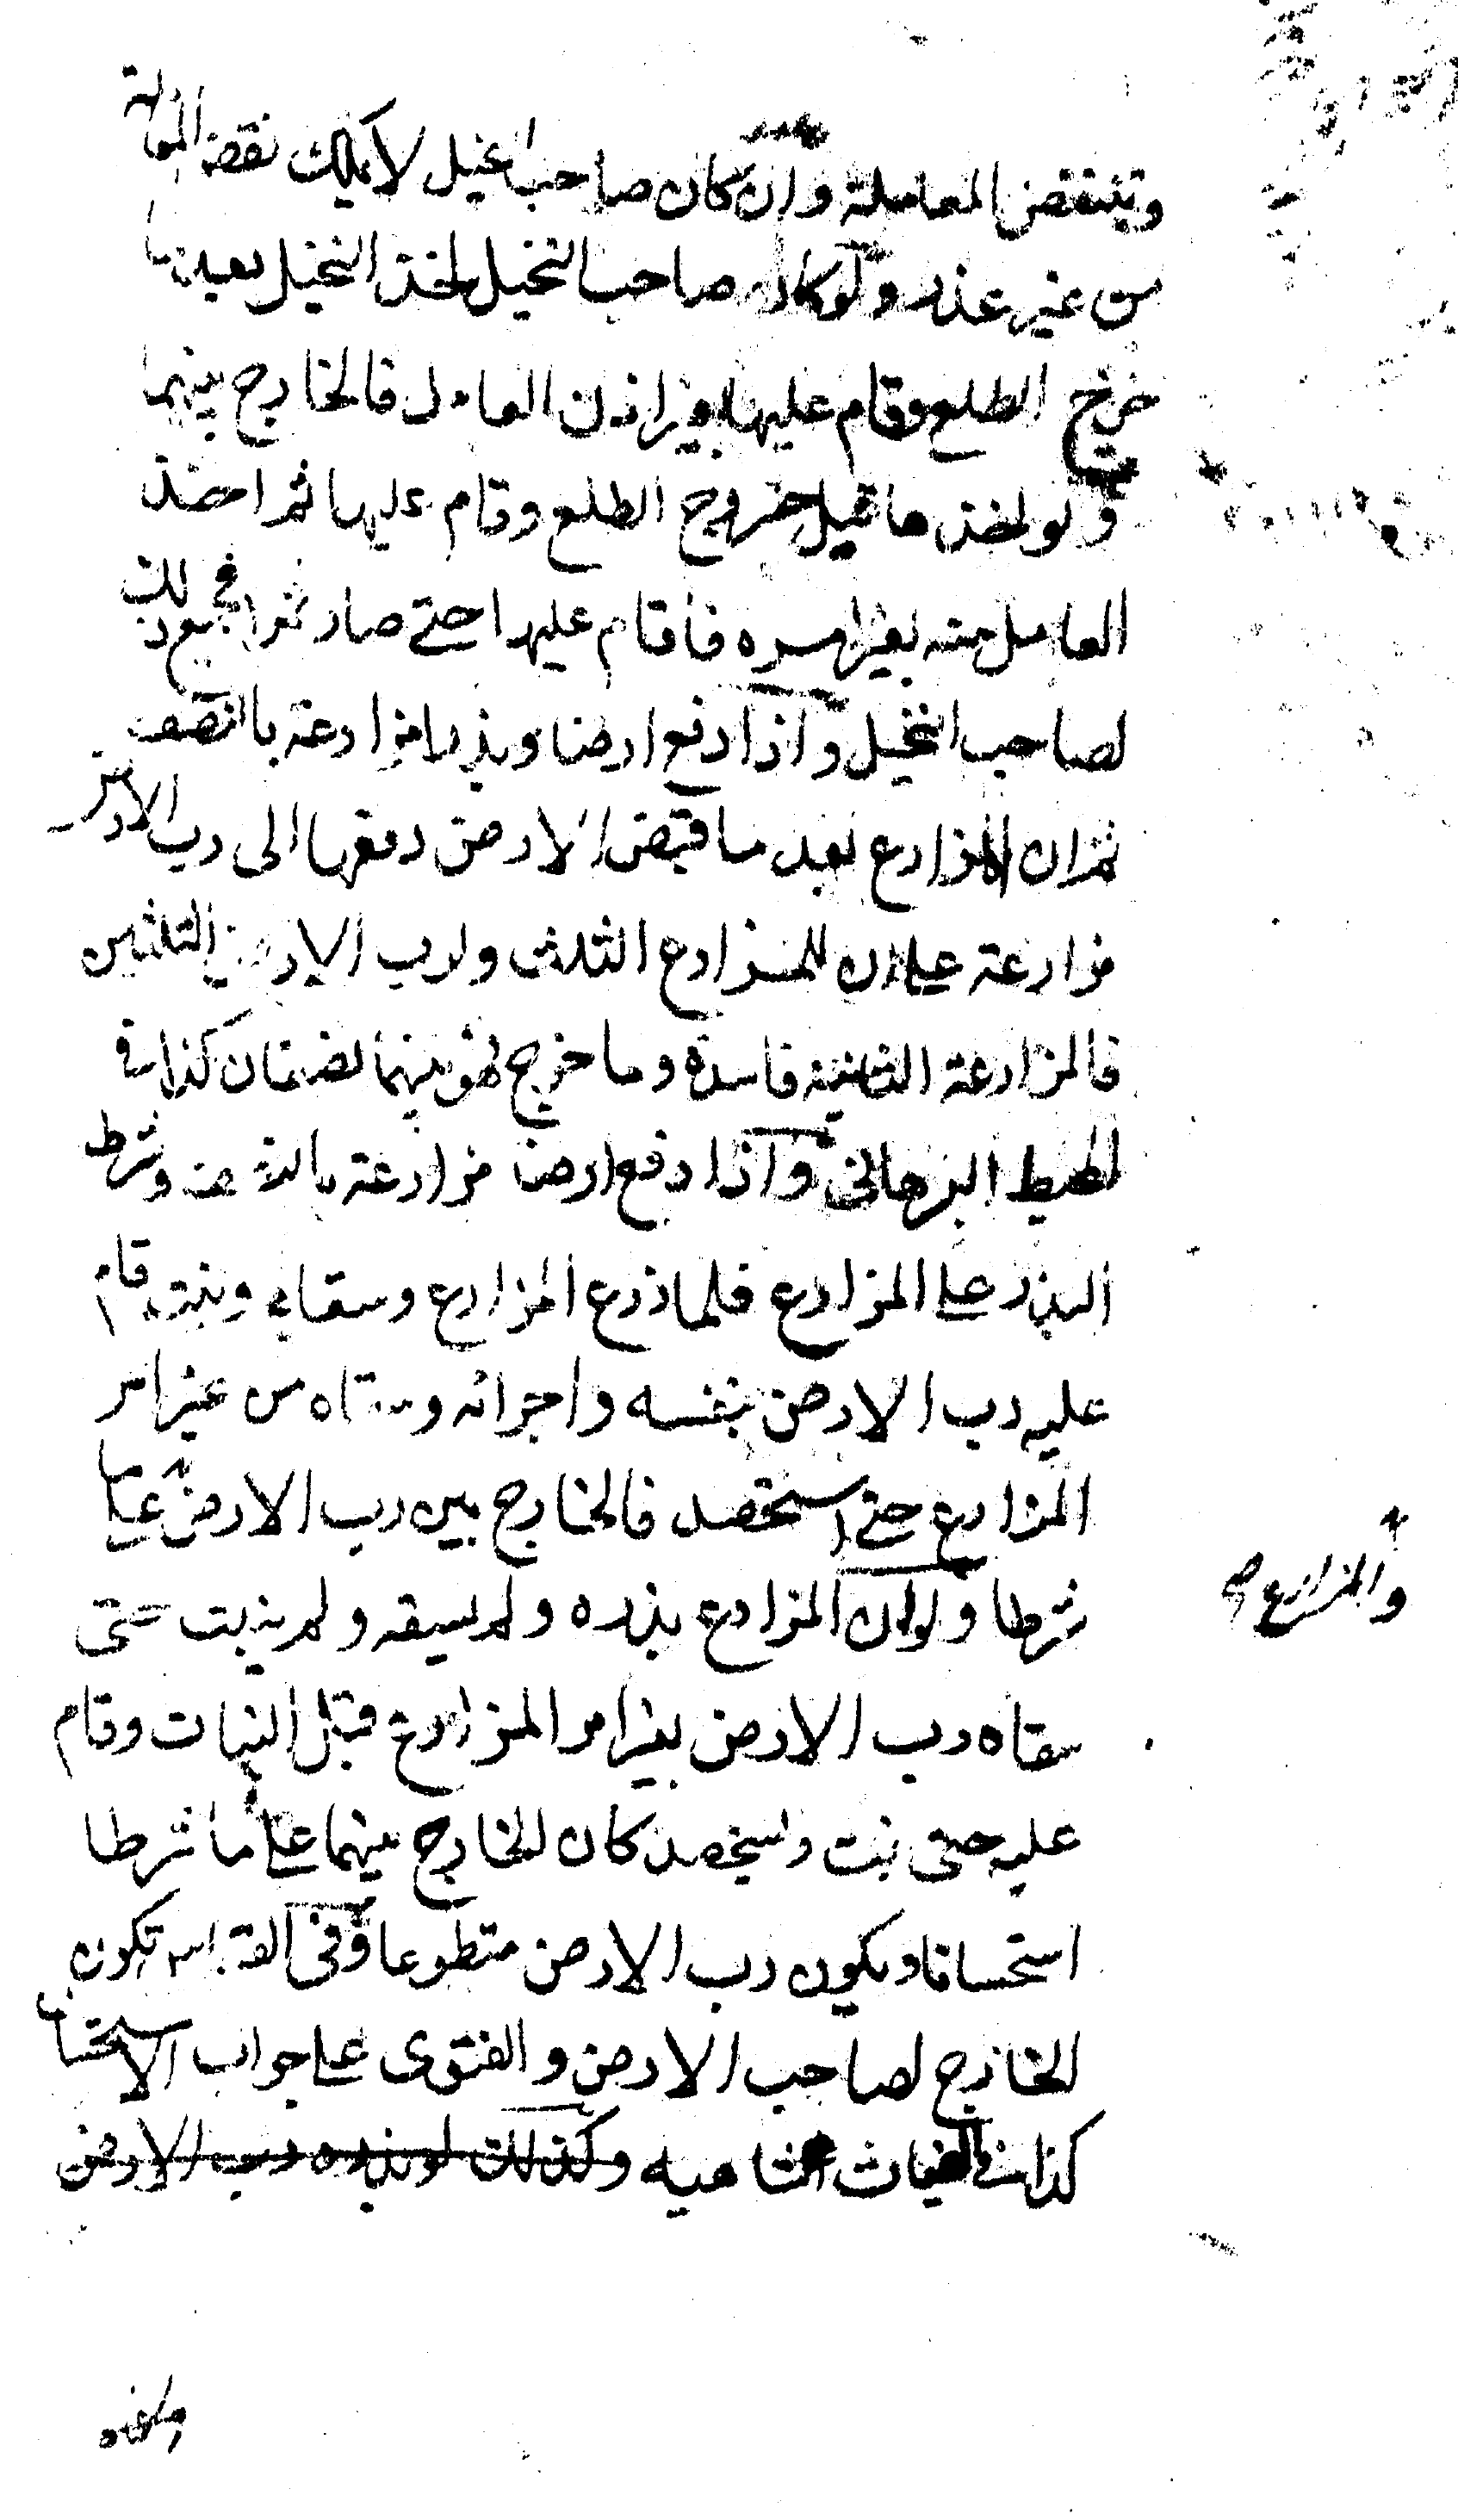 وتنتقض المعاملة وان كان صاحب النخيل لا يملك نقض المعاملة
من غير عذر ولو كان صاحب النخيل اخذ النخيل بعد ما
خرج الطلع وقام عليها بغير اذن العامل فالخارج بينهما
ولو اخذها قبل خروج الطلع وقام عليها ثم اخذ
العامل منه بغير امره فاقام عليها حتى صار تمرا فجميع ذلك
لصاحب النخيل واذا دفع ارضا وبذرا مزارعة بالنصف
ثم ان المزارع بعد ما قبض الارض دفعها الى رب الارض
مزارعة على ان للمزارع الثلث ولرب الارض الثلثين
فالمزارعة الثانية فاسدة وما خرج فهو بينهما نصفان كذا في
المحيط البرهاني واذا دفع ارضا مزارعة بالنصف وشرط
البذر على المزارع فلما زرع المزارع وسقاه ونبت قام
عليه رب الارض بنفسه واجرائه وسقاه من غير امر
المزارع حتى استحصد فالخارج بين رب الارض على ما
والمزارع صح
شرطا ولو ان المزارع بذره ولم يسقه ولم ينبت حتى
سقاه رب الارض بغير امر المزارع قبل النبات وقام
عليه حتى نبت واستحصد كان الخارج بينهما على ما شرطا
استحسانا ويكون رب الارض متطوعا وفي القياس تكون
الخارج لصاحب الارض والفتوى على جواب الاستحسان
كذا في الغياث الشاهيه وكذلك لو بذره رب الارض